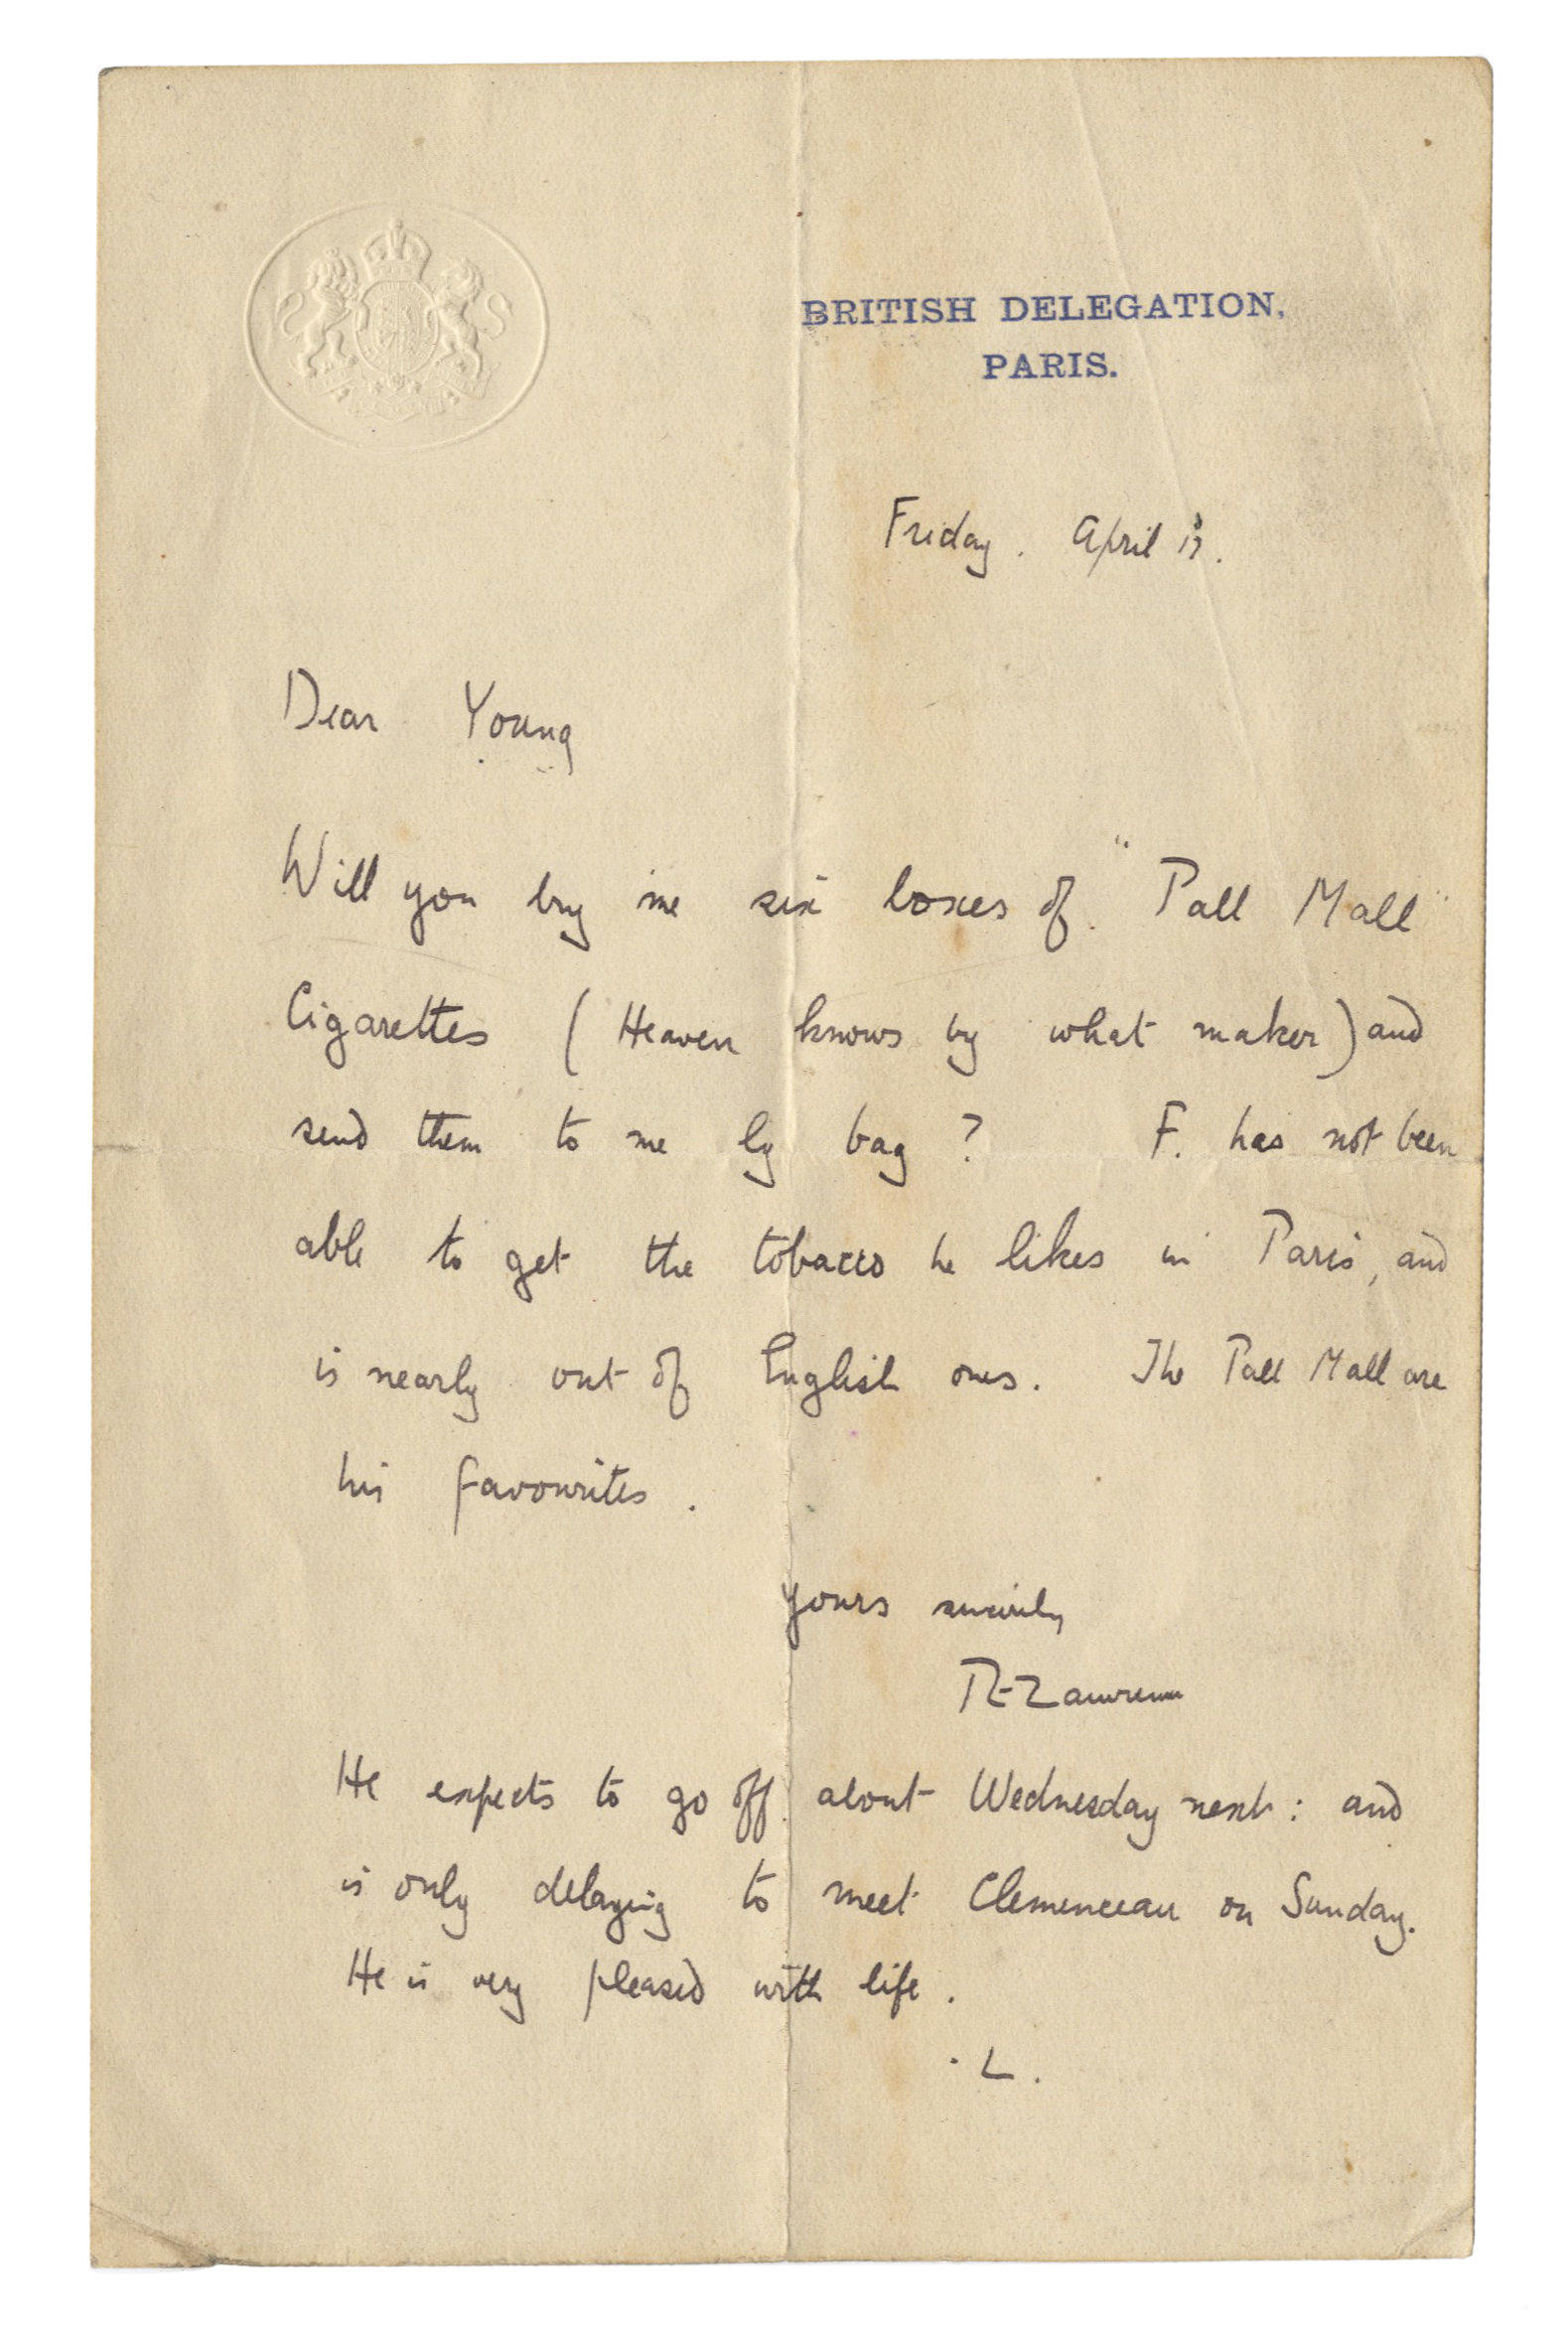 BRITISH DELEGATION,
PARIS.
Friday. April
Dear Young
Will you buy me six boxes of "Pall Mall"
Cigarettes (Heaven knows by what maker) and
send them to me by bag? F. has not been
able to get the tobacco he likes in Paris, and
is nearly out of English ones. The Pall Mall are
his favourites.
Yours sincerely
TE Lawrence
He expects to go off about Wednesday next: and
is only delaying to meet Clemenceau on Sunday.
He is very pleased with life.
L.